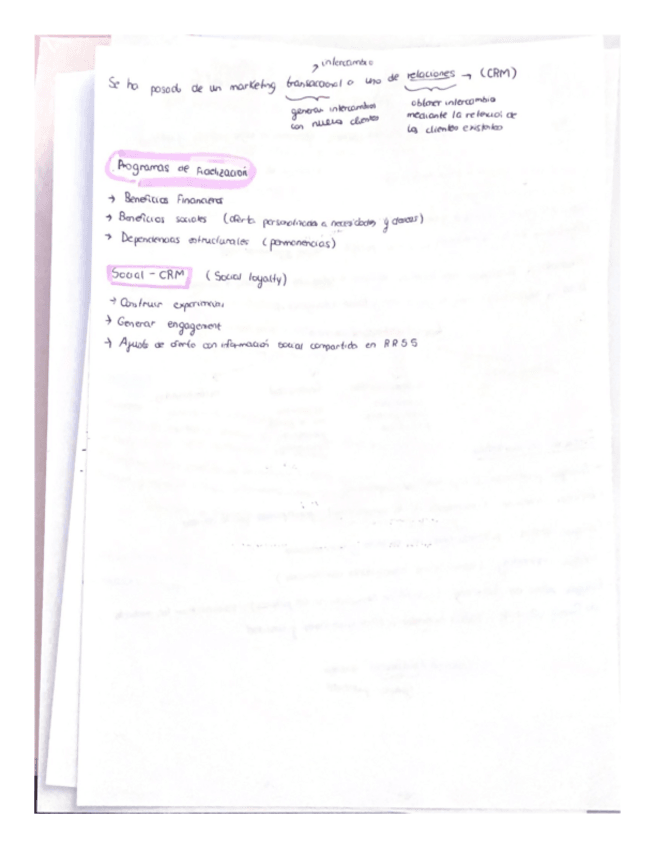 intercambio
Se ha pasado de un marketing transaccional a uno de relaciones → (CRM)
generar intercambios
con nuevos clientes
obtener intercambio
mediante la retencion de
los clientes existentes
Programas de fidelización
→ Beneficios Financieros
→ Beneficios sociales (oferta personalizada a necesidades y deseos)
→ Dependencias estructurales (permanencias)
Social - CRM (Social loyalty)
→ Construir experiencias
→ Generar engagement
→ Ajuste de oferta con información social compartida en RRSS